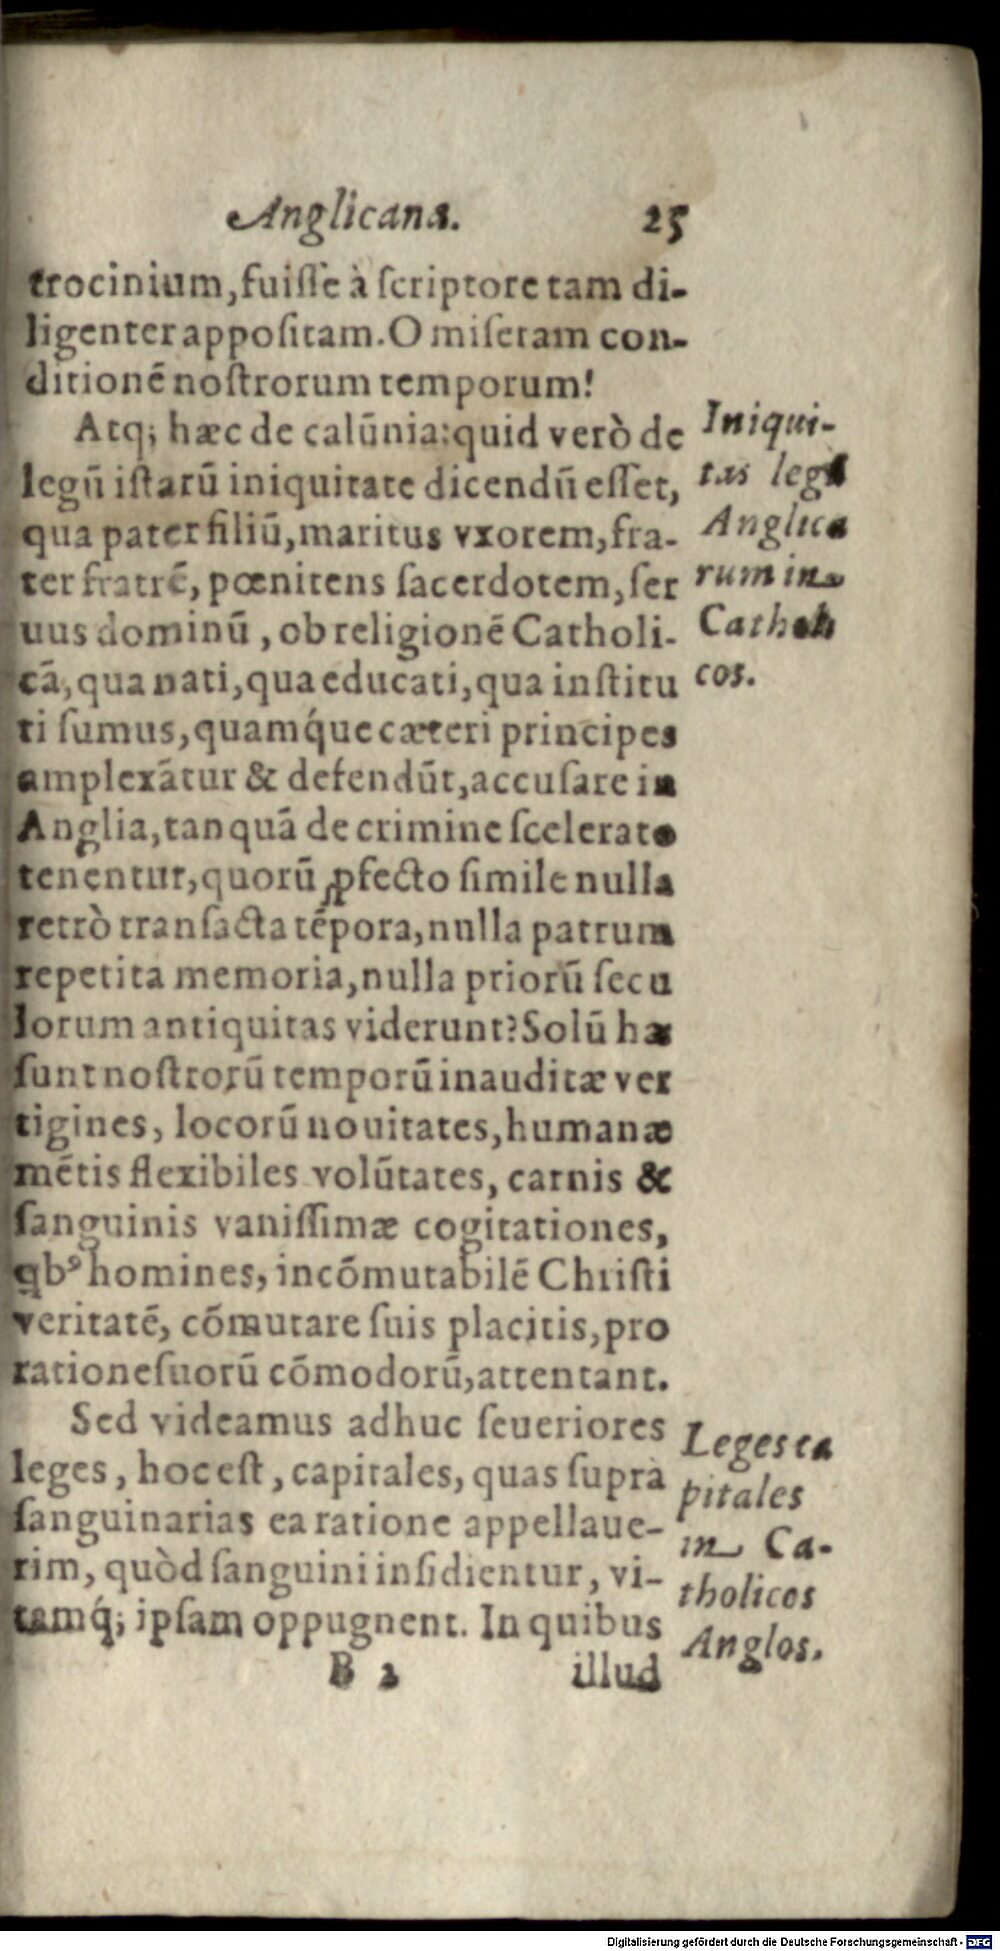 Anglicana. 25
trocinium, fuiſſe à ſcriptore tam di-
ligenter appoſitam. O miſeram con-
ditionē noſtrorum temporum!
Atq; hæc de calūnia: quid verò de
legū iſtarū iniquitate dicendū eſſet,
qua pater filiū, maritus vxorem, fra-
ter fratrē, pœnitens ſacerdotem, ſer
uus dominū, ob religionē Catholi-
cā, qua nati, qua educati, qua inſtitu
ti ſumus, quamq́ue cæteri principes
amplexātur & defendūt, accuſare in
Anglia, tanquā de crimine ſcelerato
tenentur, quorū ꝓfecto ſimile nulla
retrò tranſacta tēpora, nulla patrum
repetita memoria, nulla priorū ſecu
lorum antiquitas viderunt? Solū hæ
ſunt noſtrorū temporū inauditæ ver
tigines, locorū nouitates, humanæ
mētis flexibiles volūtates, carnis &
ſanguinis vaniſſimæ cogitationes,
qbꝰ homines, incōmutabilē Chriſti
veritatē, cōmutare ſuis placitis, pro
ratione ſuorū cōmodorū, attentant.
Sed videamus adhuc ſeueriores
leges, hoc eſt, capitales, quas ſuprà
ſanguinarias ea ratione appellaue-
rim, quòd ſanguini inſidientur, vi-
tamq́; ipſam oppugnent. In quibus
B 2 illud
Iniqui-
tas legū
Anglica
rum in
Catholi
cos.
Leges ca
pitales
in Ca-
tholicos
Anglos.
Digitalisierung gefördert durch die Deutsche Forschungsgemeinschaft - DFG